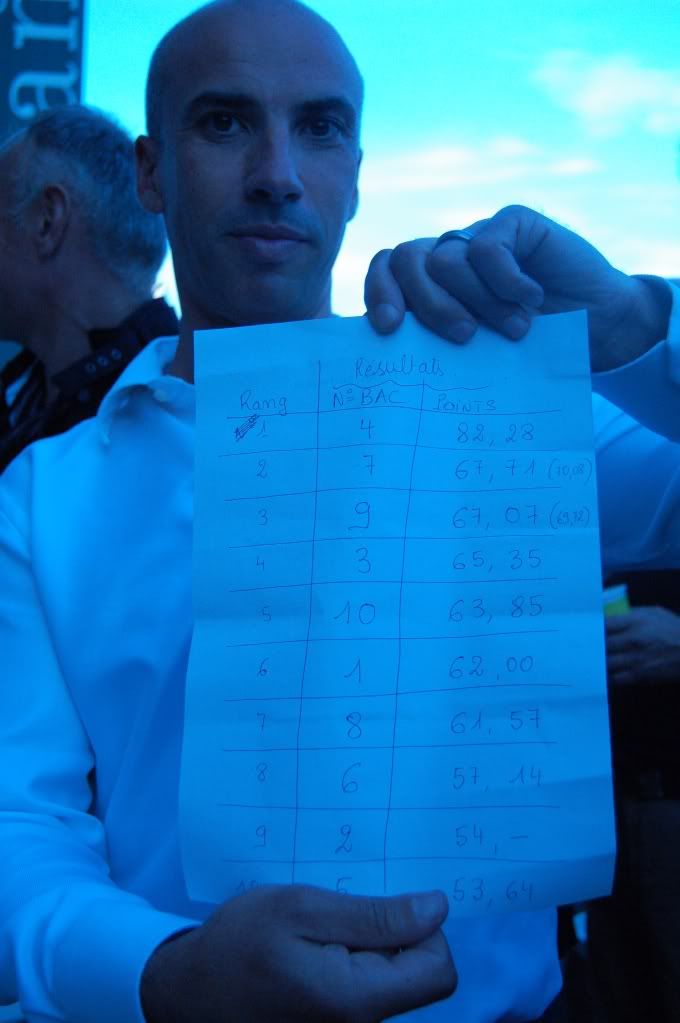 an
Résultats
Rang N° BAC POINTS
1 4 82,28
2 7 67,71 (70,08)
3 9 67,07 (69,72)
4 3 65,35
5 10 63,85
6 1 62,00
7 8 61,57
8 6 57,14
9 2 54,-
10 5 53,64